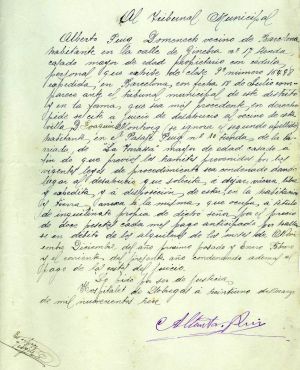 Al Tribunal Municipal
Alberto Puig Domenech vecino de Barcelona
habitante en la calle de Ginebra nº 17 tienda,
casado mayor de edad propietario con cedula
personal que exhibe de clase 9ª número
expedida en Barcelona, con fecha 18 de
ante el tribunal municipal de este distrito
y en la forma que sea más procedente en derecho
pide se cite a juicio de desahucio al vecino de esta
villa D. Joaquin ignoro su segundo apellido
habitante en el Pasaje Puig nº 11 tienda, de la ba-
rriada de La Torrassa mayor de edad casado a
fin de que previos los trámites prevenidos por las
vigentes leyes de procedimiento sea condenado dando
lugar al desahucio que solicita, a dejar, vacua libre
y expedita y a disposición de este en la habitación
y tienda anexa a la misma que ocupa, a título
de inquilinato propia de dicho señor, por el precio
de doce pesetas cada mes pago anticipado por hallar-
se en debito de los alquileres de los meses de Novi-
embre Diciembre, del año proximo pasado y Enero Febrero
y el corriente del presente año condenandole además al
pago de las costas del juicio.
Es así de ser de justicia.
Hospitalet de Llobregat á veintiuno de Marzo
de mil novecientos
Alberto Puig